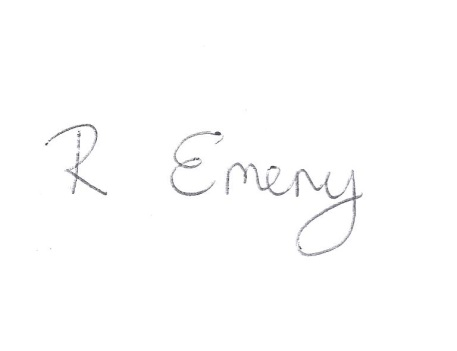 R Emery